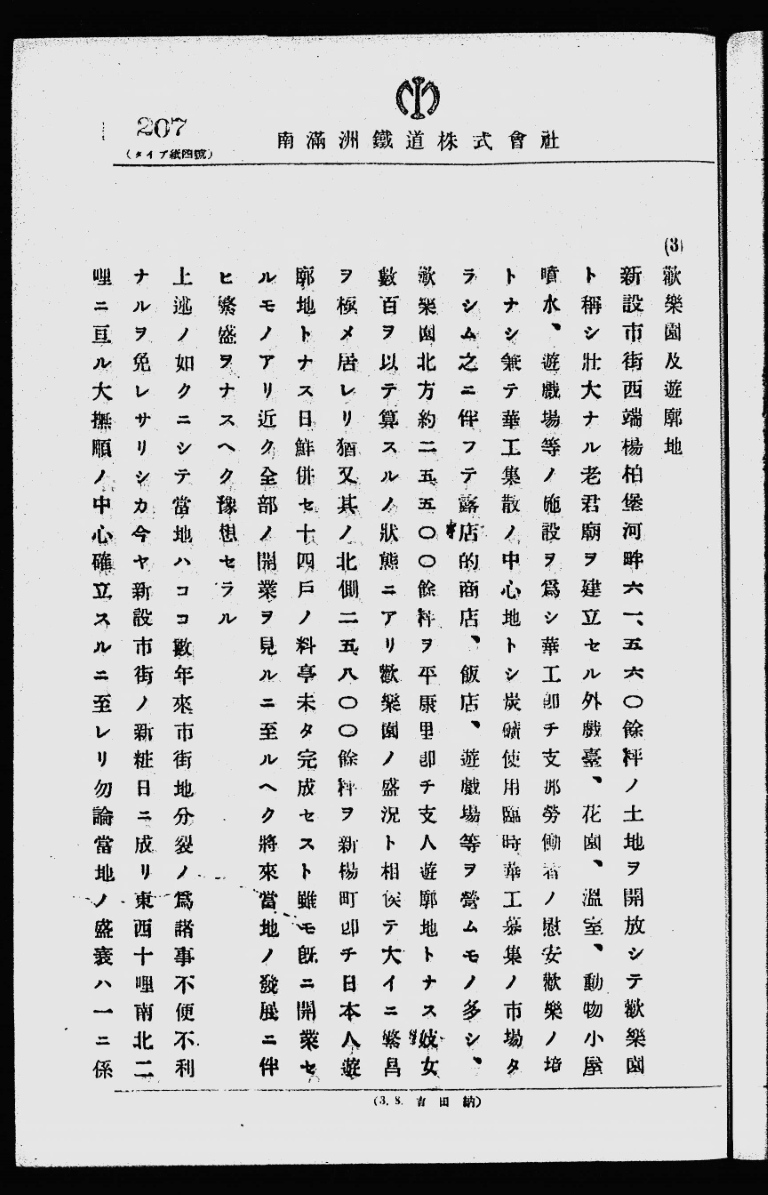 207
(タイプ紙四號)
南滿洲鐵道株式會社
(3)歡樂園及遊廓地
新設市街西端楊柏堡河畔六一、五六〇餘坪ノ土地ヲ開放シテ歡樂園
ト稱シ壯大ナル老君廟ヲ建立セル外戲臺、花園、溫室、動物小屋
噴水、遊戲場等ノ施設ヲ爲シ華工卽チ支那勞働者ノ慰安歡樂ノ塲
トナシ兼テ華工集散ノ中心地トシ炭礦使用臨時華工募集ノ市場タ
ラシム之ニ伴フテ露店的商店、飯店、遊戲場等ヲ營ムモノ多シ、
歡樂園北方約二五五〇〇餘坪ヲ平康里卽チ支人遊廓地トナス妓女
數百ヲ以テ算スルノ狀態ニアリ歡樂園ノ盛況ト相俟テ大イニ繁昌
ヲ極メ居レリ猶又其ノ北側二五八〇〇餘坪ヲ新楊町卽チ日本人遊
廓地トナス日鮮併セ十四戶ノ料亭未タ完成セスト雖モ旣ニ開業セ
ルモノアリ近ク全部ノ開業ヲ見ルニ至ルヘク將來當地ノ發展ニ伴
ヒ繁盛ヲナスヘク豫想セラル
上述ノ如クニシテ當地ハココ數年來市街地分裂ノ爲諸事不便不利
ナルヲ免レサリシカ今ヤ新設市街ノ新粧日ニ成リ東西十哩南北二
哩ニ亘ル大撫順ノ中心確立スルニ至レリ勿論當地ノ盛衰ハ一ニ係
(3. 8. 吉田納)